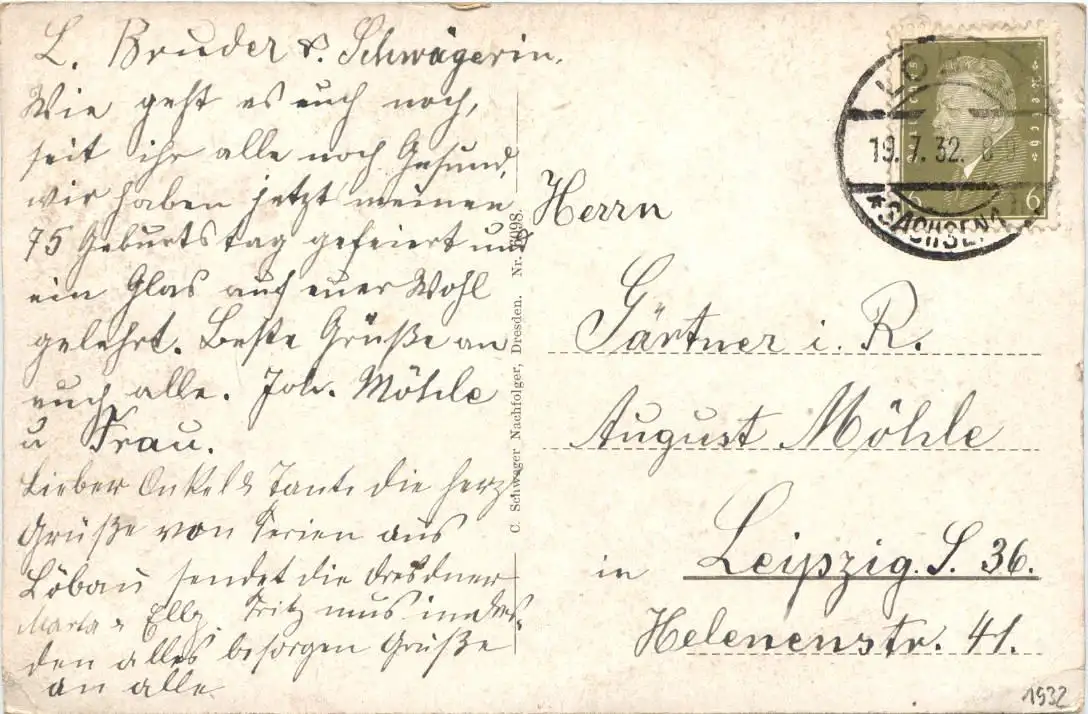 L. Bruder & Schwägerin.
Wie geht es euch noch,
seit ihr alle noch Gesund,
wir haben jetzt meinen
75 Geburtstag gefeiert und
ein Glas auf euer Wohl
gelehrt. Beste Grüße an
euch alle. Joh. Möhle
u Frau.
Lieber Onkel & Tante die herz
Grüße von Ferien aus
Löbau sendet die Dresdner
Marta & Elly. Fritz mus in dres-
den alles besorgen Grüße
an alle
C. Schwager Nachfolger, Dresden. Nr. 6098.
19.7.32. 8-9
*SACHSEN
6
Herrn
Gärtner i. R.
August Möhle
in Leipzig. S. 36.
Helenenstr. 41.
1932